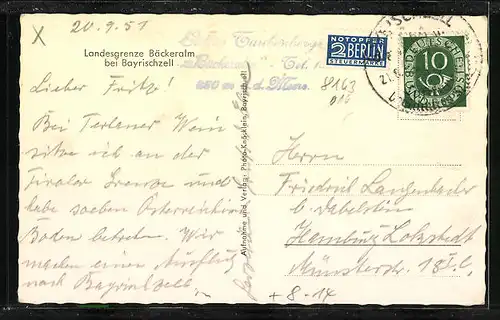 x
20.9.51
Landesgrenze Bäckeralm
bei Bayrischzell
Lieber Fritz!
Bei Terlaner Wein
sitze ich an der
Tiroler Grenze und
habe soeben Österreichischen
Boden betreten. Wir
machen einen Ausflug
nach Bayrischzell.
Aufnahme und Verlag: Photo
Bayrischzell
NOTOPFER
2 BERLIN
STEUERMARKE
DEUTSCHE BUNDESPOST
10
8163
Herrn
Friedrich
b.
Hamburg Lokstedt
Münsterstr. 18
+ 8.-14